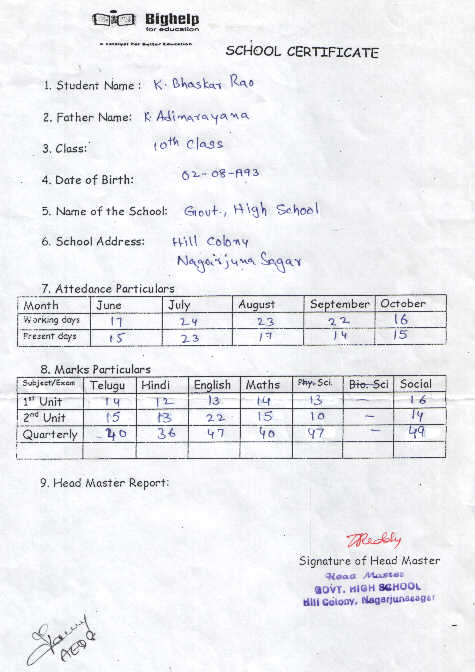 Bighelp
for education
A Catalyst For Better Education
SCHOOL CERTIFICATE
1. Student Name : K. Bhaskar Rao
2. Father Name: K. Adinarayana
3. Class: 10th Class
4. Date of Birth: 02-08-1993
5. Name of the School: Govt., High School
6. School Address: Hill Colony
Nagarjuna Sagar
7. Attedance Particulars
Month June July August September October
Working days 17 24 23 22 16
Present days 15 23 17 14 15
8. Marks Particulars
Subject/Exam Telugu Hindi English Maths Phy. Sci. Bio. Sci Social
1st Unit 14 12 13 14 13 - 16
2nd Unit 15 13 22 15 10 - 14
Quarterly 40 36 47 40 47 - 49
9. Head Master Report:
TReddy
Signature of Head Master
Head Master
GOVT. HIGH SCHOOL
Hill Colony, Nagarjunasagar